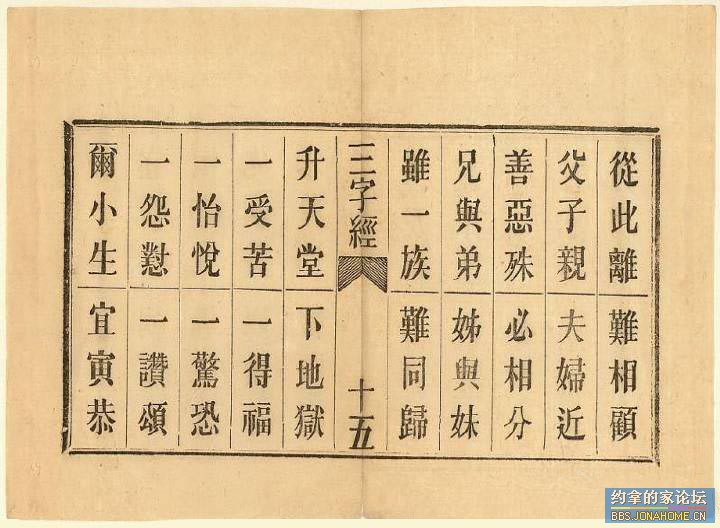 從此離 難相顧
父子親 夫婦近
善惡殊 必相分
兄與弟 姊與妹
雖一族 難同歸
三字經 十五
升天堂 下地獄
一受苦 一得福
一怡悅 一驚恐
一怨懟 一讚頌
爾小生 宜寅恭
约拿的家论坛
BBS.JONAHOME.CN